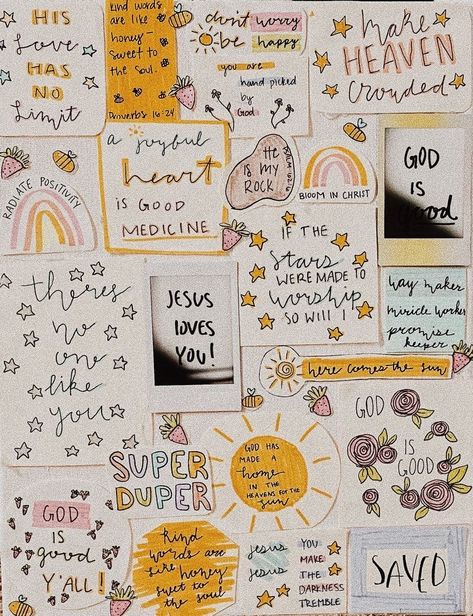 HIS
Love
HAS
NO
Limit
Kind words
are like
honey-
sweet to
the soul.
Proverbs 16:24
don't worry
be happy
you are
hand picked
by
God
Make
HEAVEN
Crowded
RADIATE POSITIVITY
a joyful
heart
IS GOOD
MEDICINE
He
IS MY
ROCK.
BLOOM IN CHRIST
GOD
IS
Good
theres
no
one
like
you
JESUS
LOVES
YOU!
IF THE
Stars
WERE MADE TO
Worship
SO WILL I
way maker
miricle worker
promise
keeper
here comes the sun
GOD
IS
GOOD
SUPER
DUPER
GOD HAS
MADE A
home
IN THE
HEAVENS FOR THE
sun
GOD
IS
good
Y'ALL!
Kind
words are
like honey
swet to
the soul
Jesus
Jesus
YOU
MAKE
THE
DARKNESS
TREMBLE
SAVED